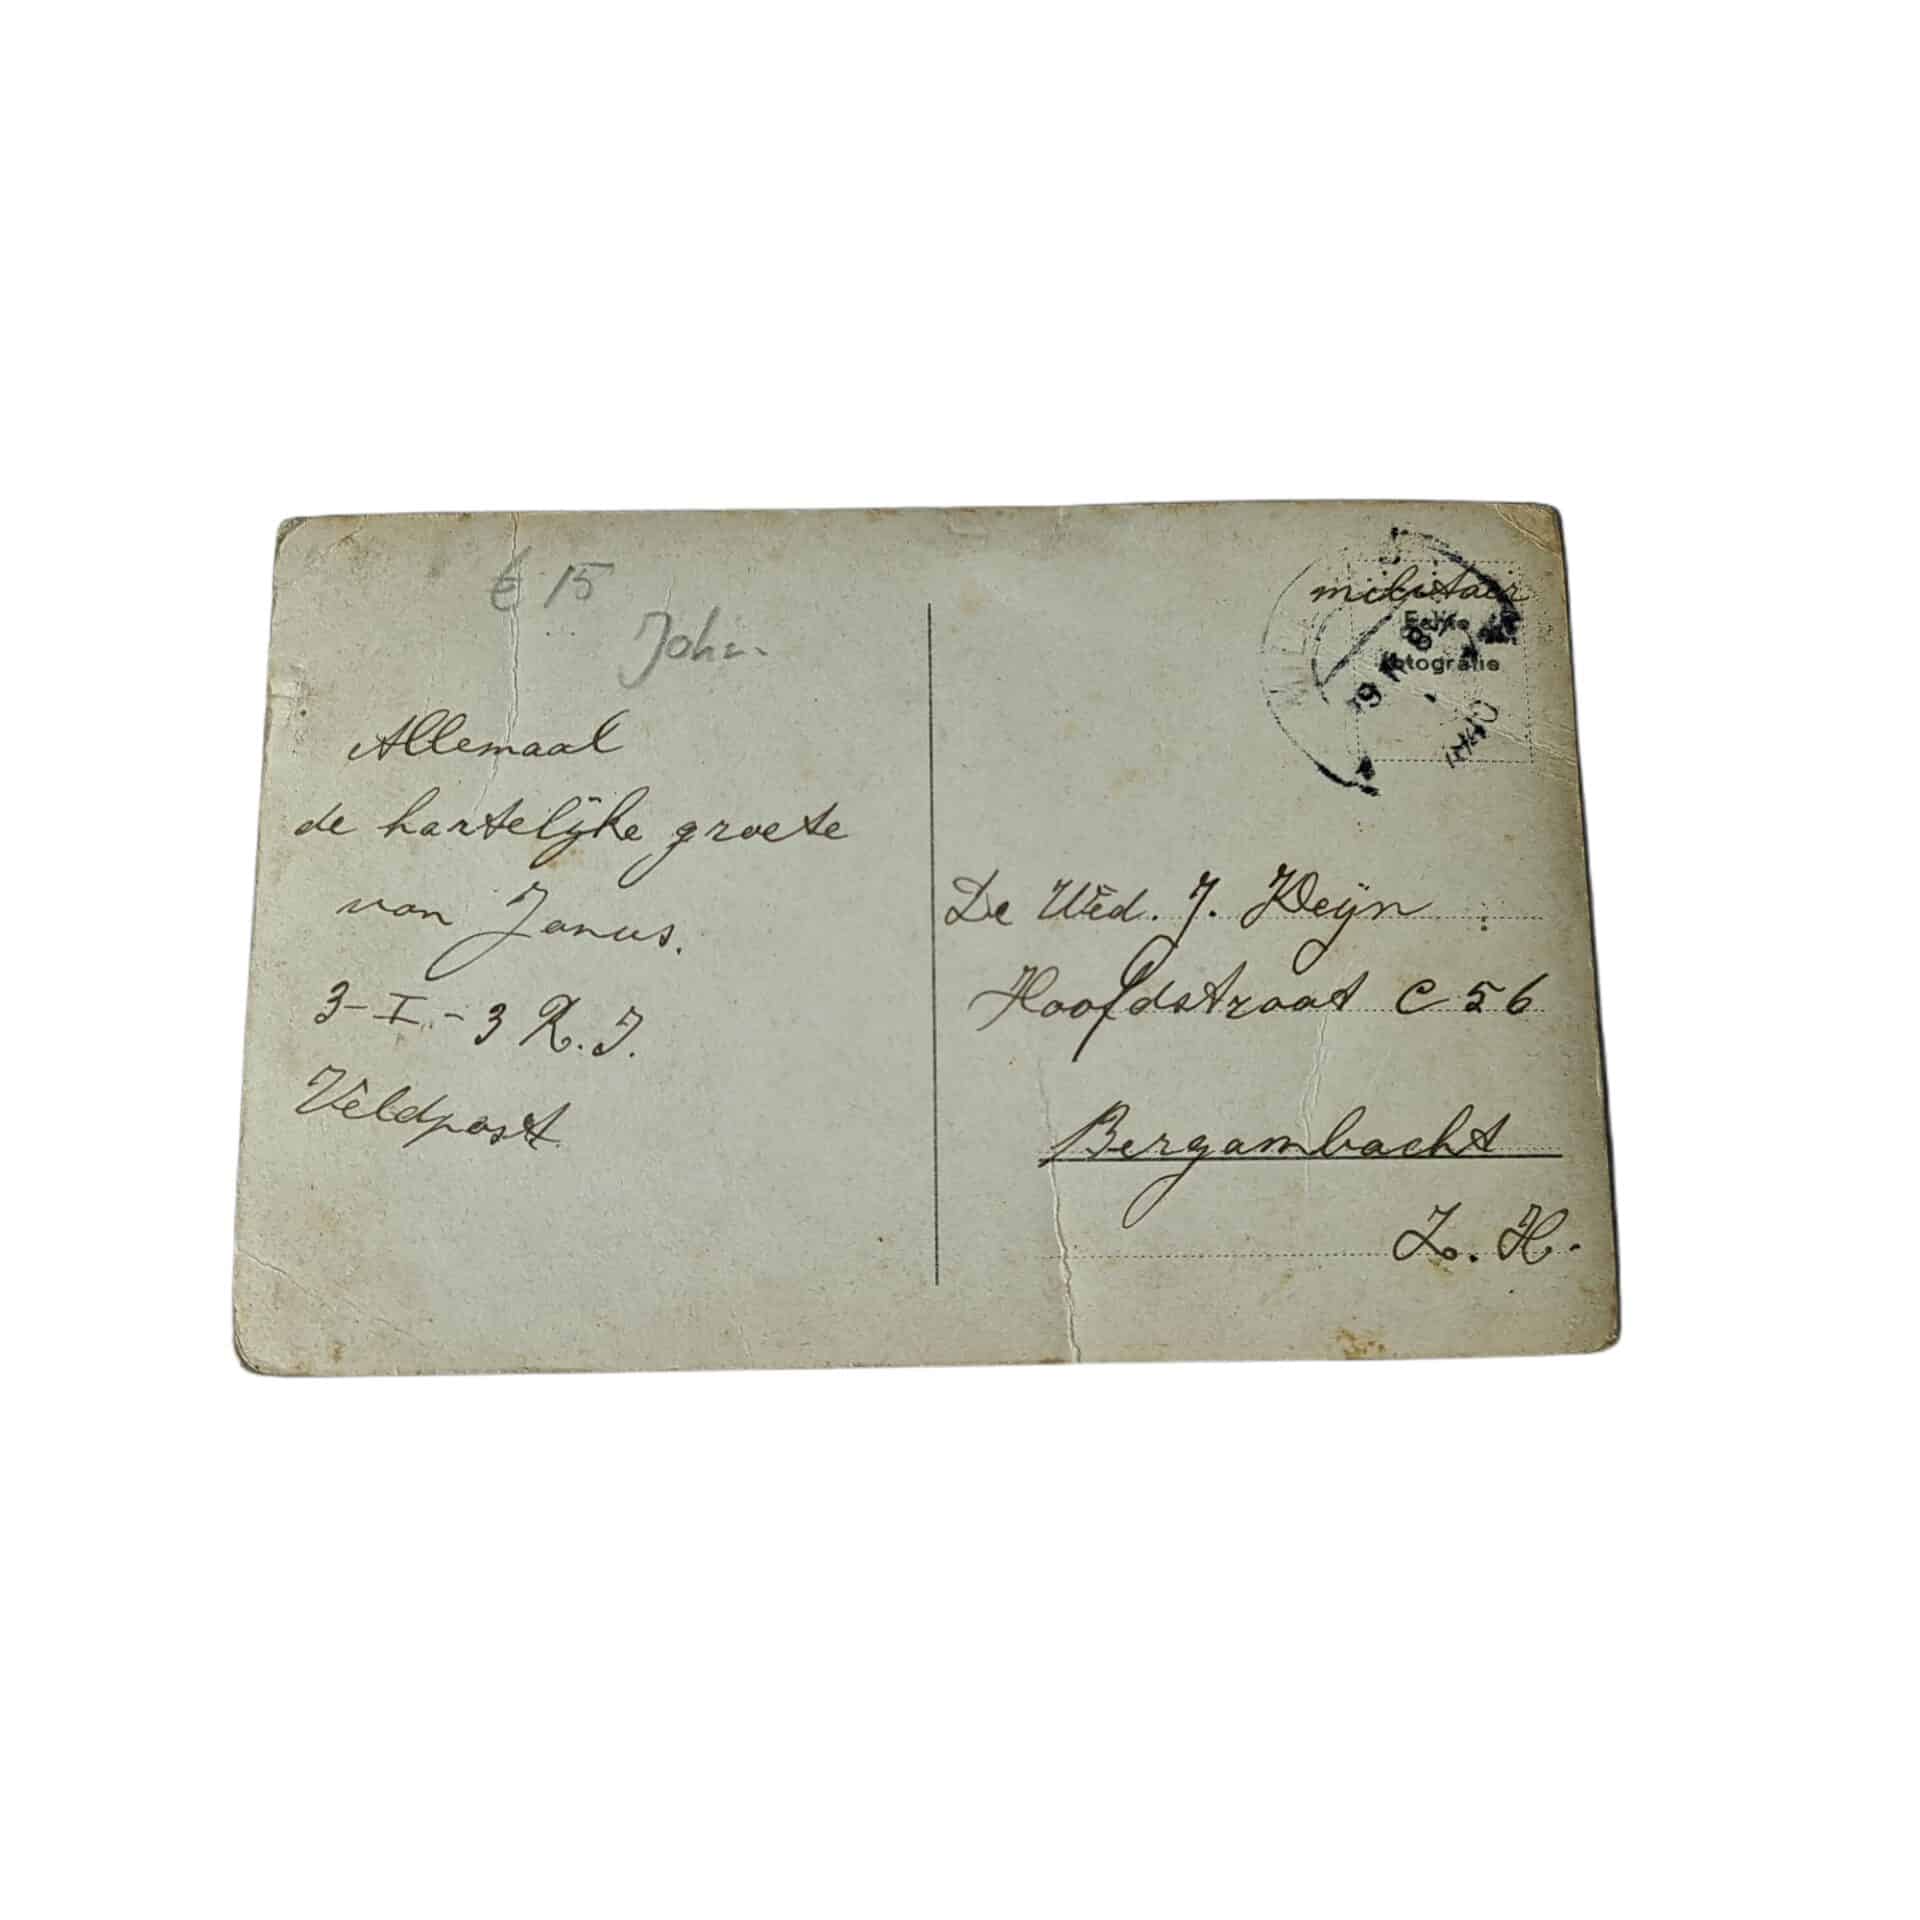 € 15
Joh
Allemaal
de hartelijke groete
van Janus.
3-I-3 R.I.
Veldpost
militair
Echte
fotografie
1940
De Wed. J. Deijn
Hoofdstraat C 56
Bergambacht
Z. H.